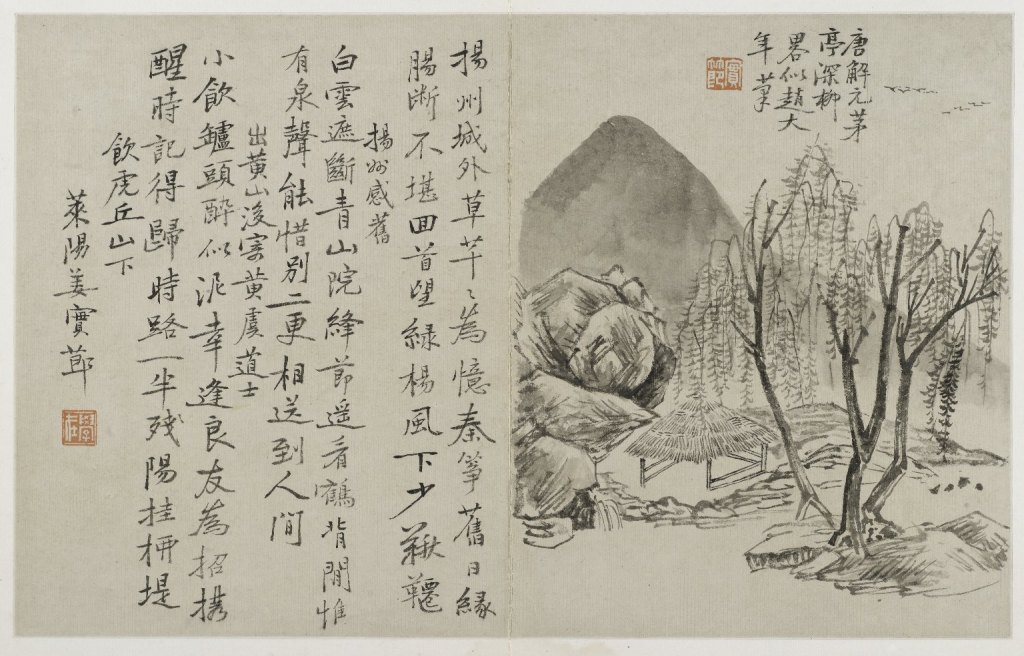 唐解元茅
亭深柳
畧似趙大
年筆
實節
揚州城外草芊〻為憶秦箏舊日緣
腸斷不堪回首望綠楊風下少鞦韆
揚州感舊
白雲遮斷青山院絳節遥看鶴背閒惟
有泉聲能惜別二更相送到人間
出黃山後寄黃虞道士
小飲鑪頭醉似泥幸逢良友為招携
醒時記得歸時路一半殘陽挂柳堤
飲虎丘山下
萊陽姜實節
學在